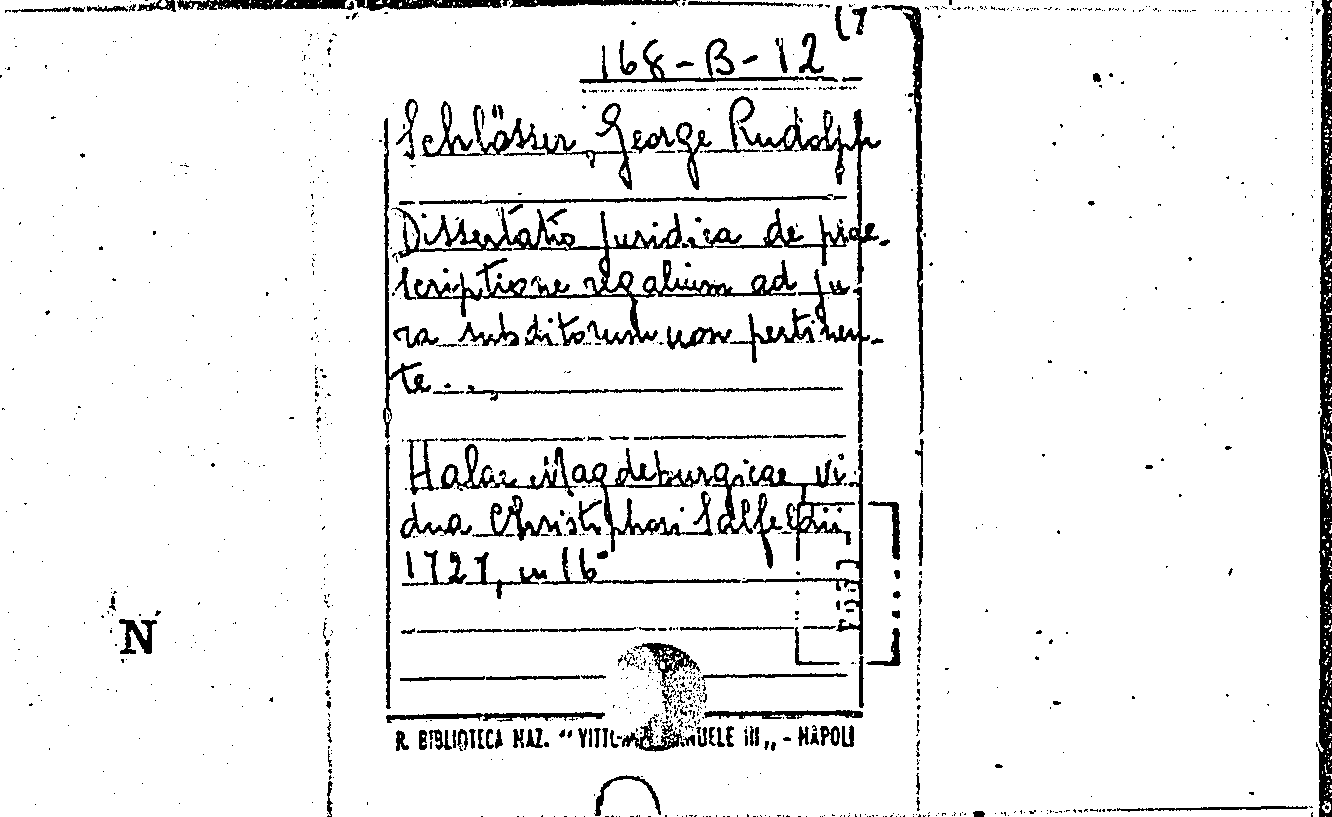 (7
168-B-12
Schlösser, George Rudolph
Dissertatio juridica de prae-
scriptione regalium ad ju-
ra subditorum non pertinen-
te...,
Halae Magdeburgicae vi-
dua Christophori Salfeldii,
1727, in 16°
N
R. BIBLIOTECA NAZ. "VITTORIO EMANUELE III„ - NAPOLI